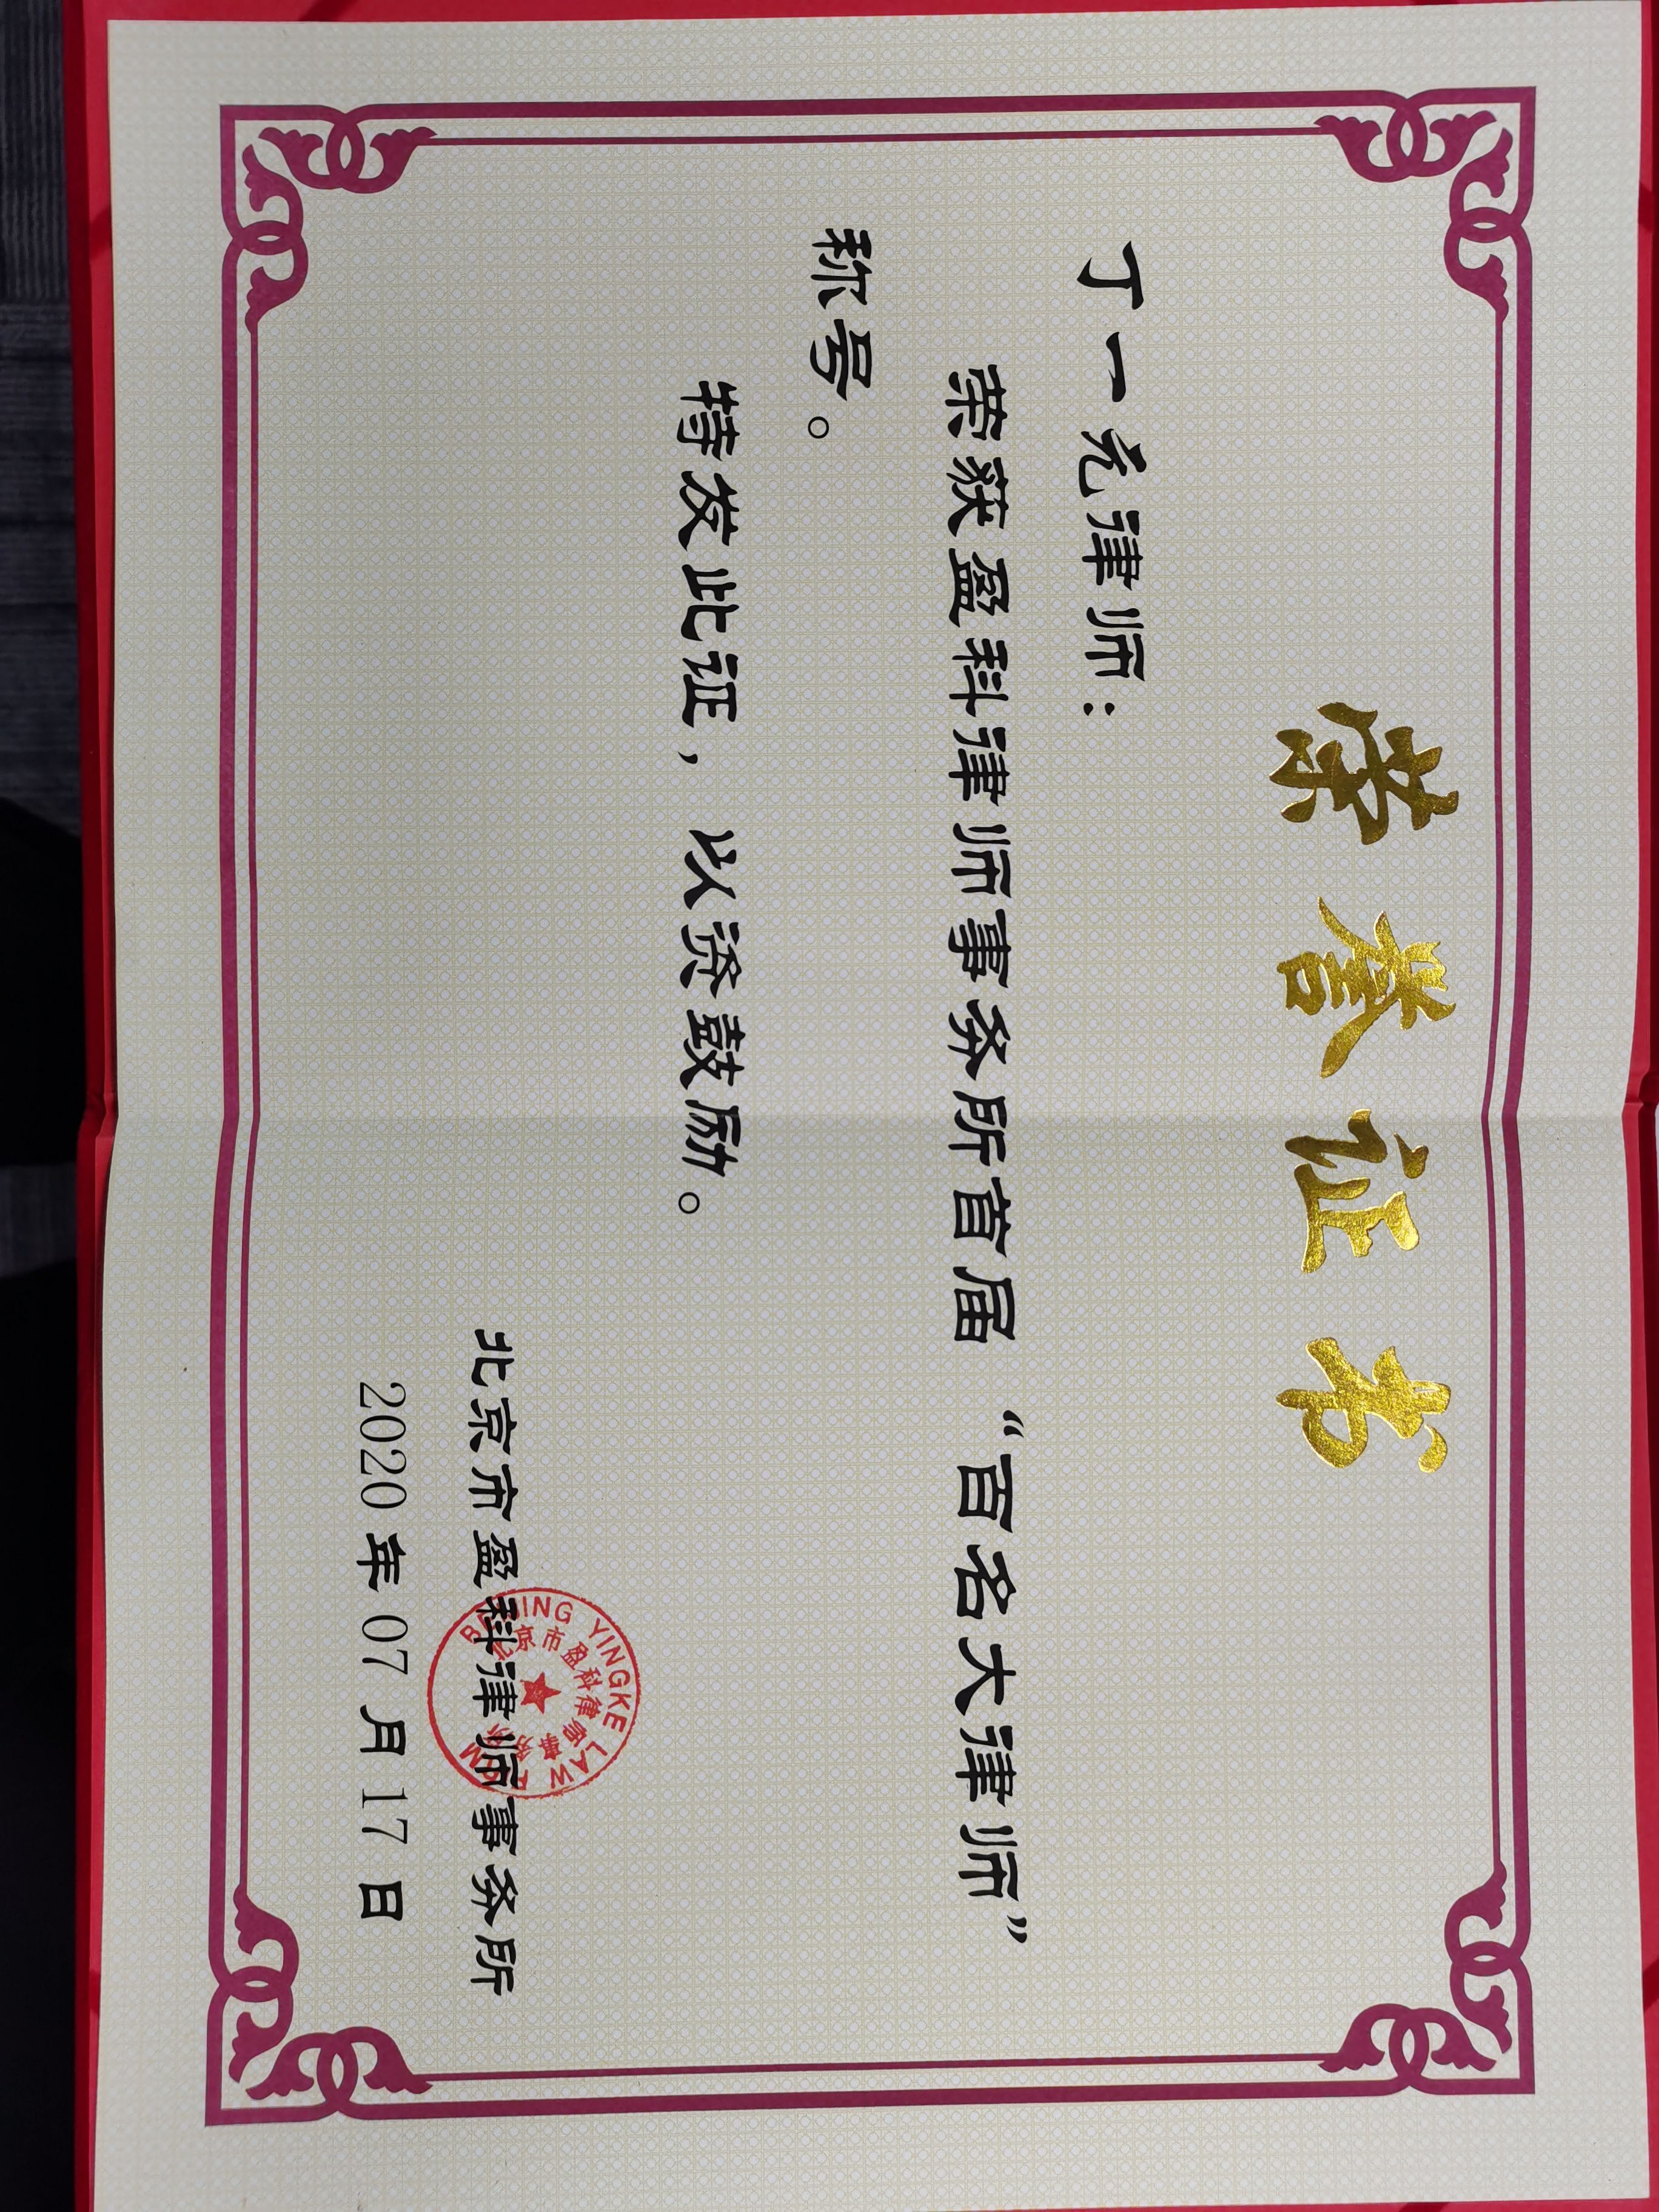 荣誉证书
丁一元律师：
荣获盈科律师事务所首届“百名大律师”
称号。
特发此证，以资鼓励。
北京市盈科律师事务所
2020年07月17日
BEIJING YINGKE LAW FIRM
北京市盈科律师事务所